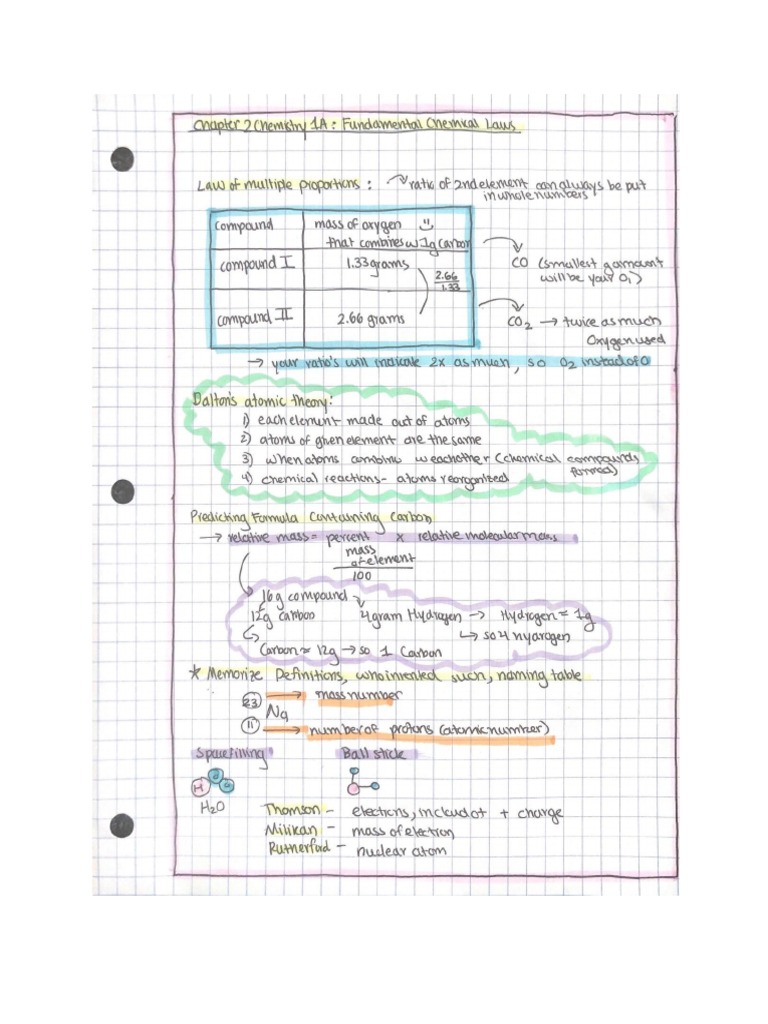 Chapter 2 Chemistry 1A: Fundamental Chemical Laws
Law of multiple proportions: ratio of 2nd element can always be put
in whole numbers
compound mass of oxygen
that combines w 1g carbon
compound I 1.33 grams
2.66
1.33
CO (smallest g amount
will be your O,)
compound II 2.66 grams
CO2 → twice as much
Oxygen used
→ your ratio's will indicate 2x as much, so O2 instead of O
Dalton's atomic theory:
1) each element made out of atoms
2) atoms of given element are the same
3) when atoms combine w eachother (chemical compounds
formed)
4) chemical reactions - atoms reorganized
Predicting Formula Containing Carbon
→ relative mass = percent x relative molecular mass
mass
of element
100
16g compound
12g carbon 4gram Hydrogen → Hydrogen = 1g
↳ so 4 hydrogen
Carbon = 12g → so 1 Carbon
* Memorize Definitions, who invented such, naming table
23 → mass number
Na
11 → number of protons (atomic number)
Spacefilling Ball stick
H
H2O
Thomson - electrons, + charge
Milikan - mass of electron
Rutherford - nuclear atom